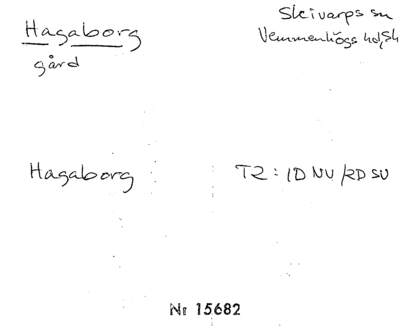 Hagaborg
gård
Skivarps sn
Vemmenhögs hd, Sk
Hagaborg
TZ: 1D NV/2D SV
Nr 15682